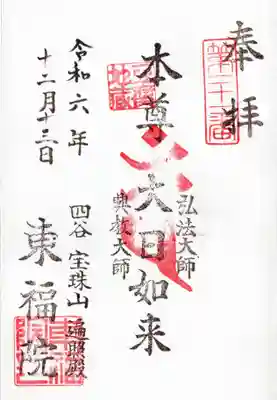 奉拝
第二十一番
弘法大師
本尊大日如来
興教大師
四谷 宝珠山 遍照殿
東福院
令和六年
十二月十三日